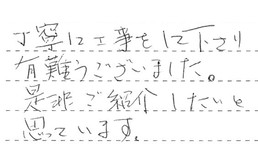 丁寧に工事をして下さり
有難うございました。
是非ご紹介したいと
思っています。